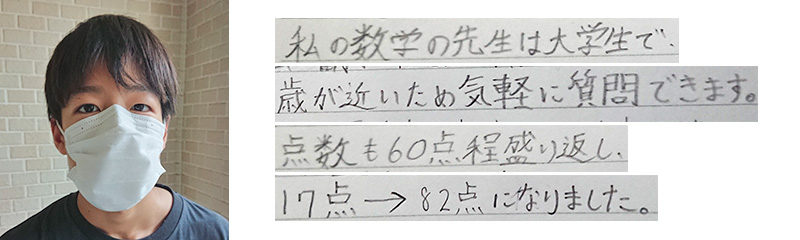 私の数学の先生は大学生で、
歳が近いため気軽に質問できます。
点数も60点程盛り返し、
17点→82点になりました。